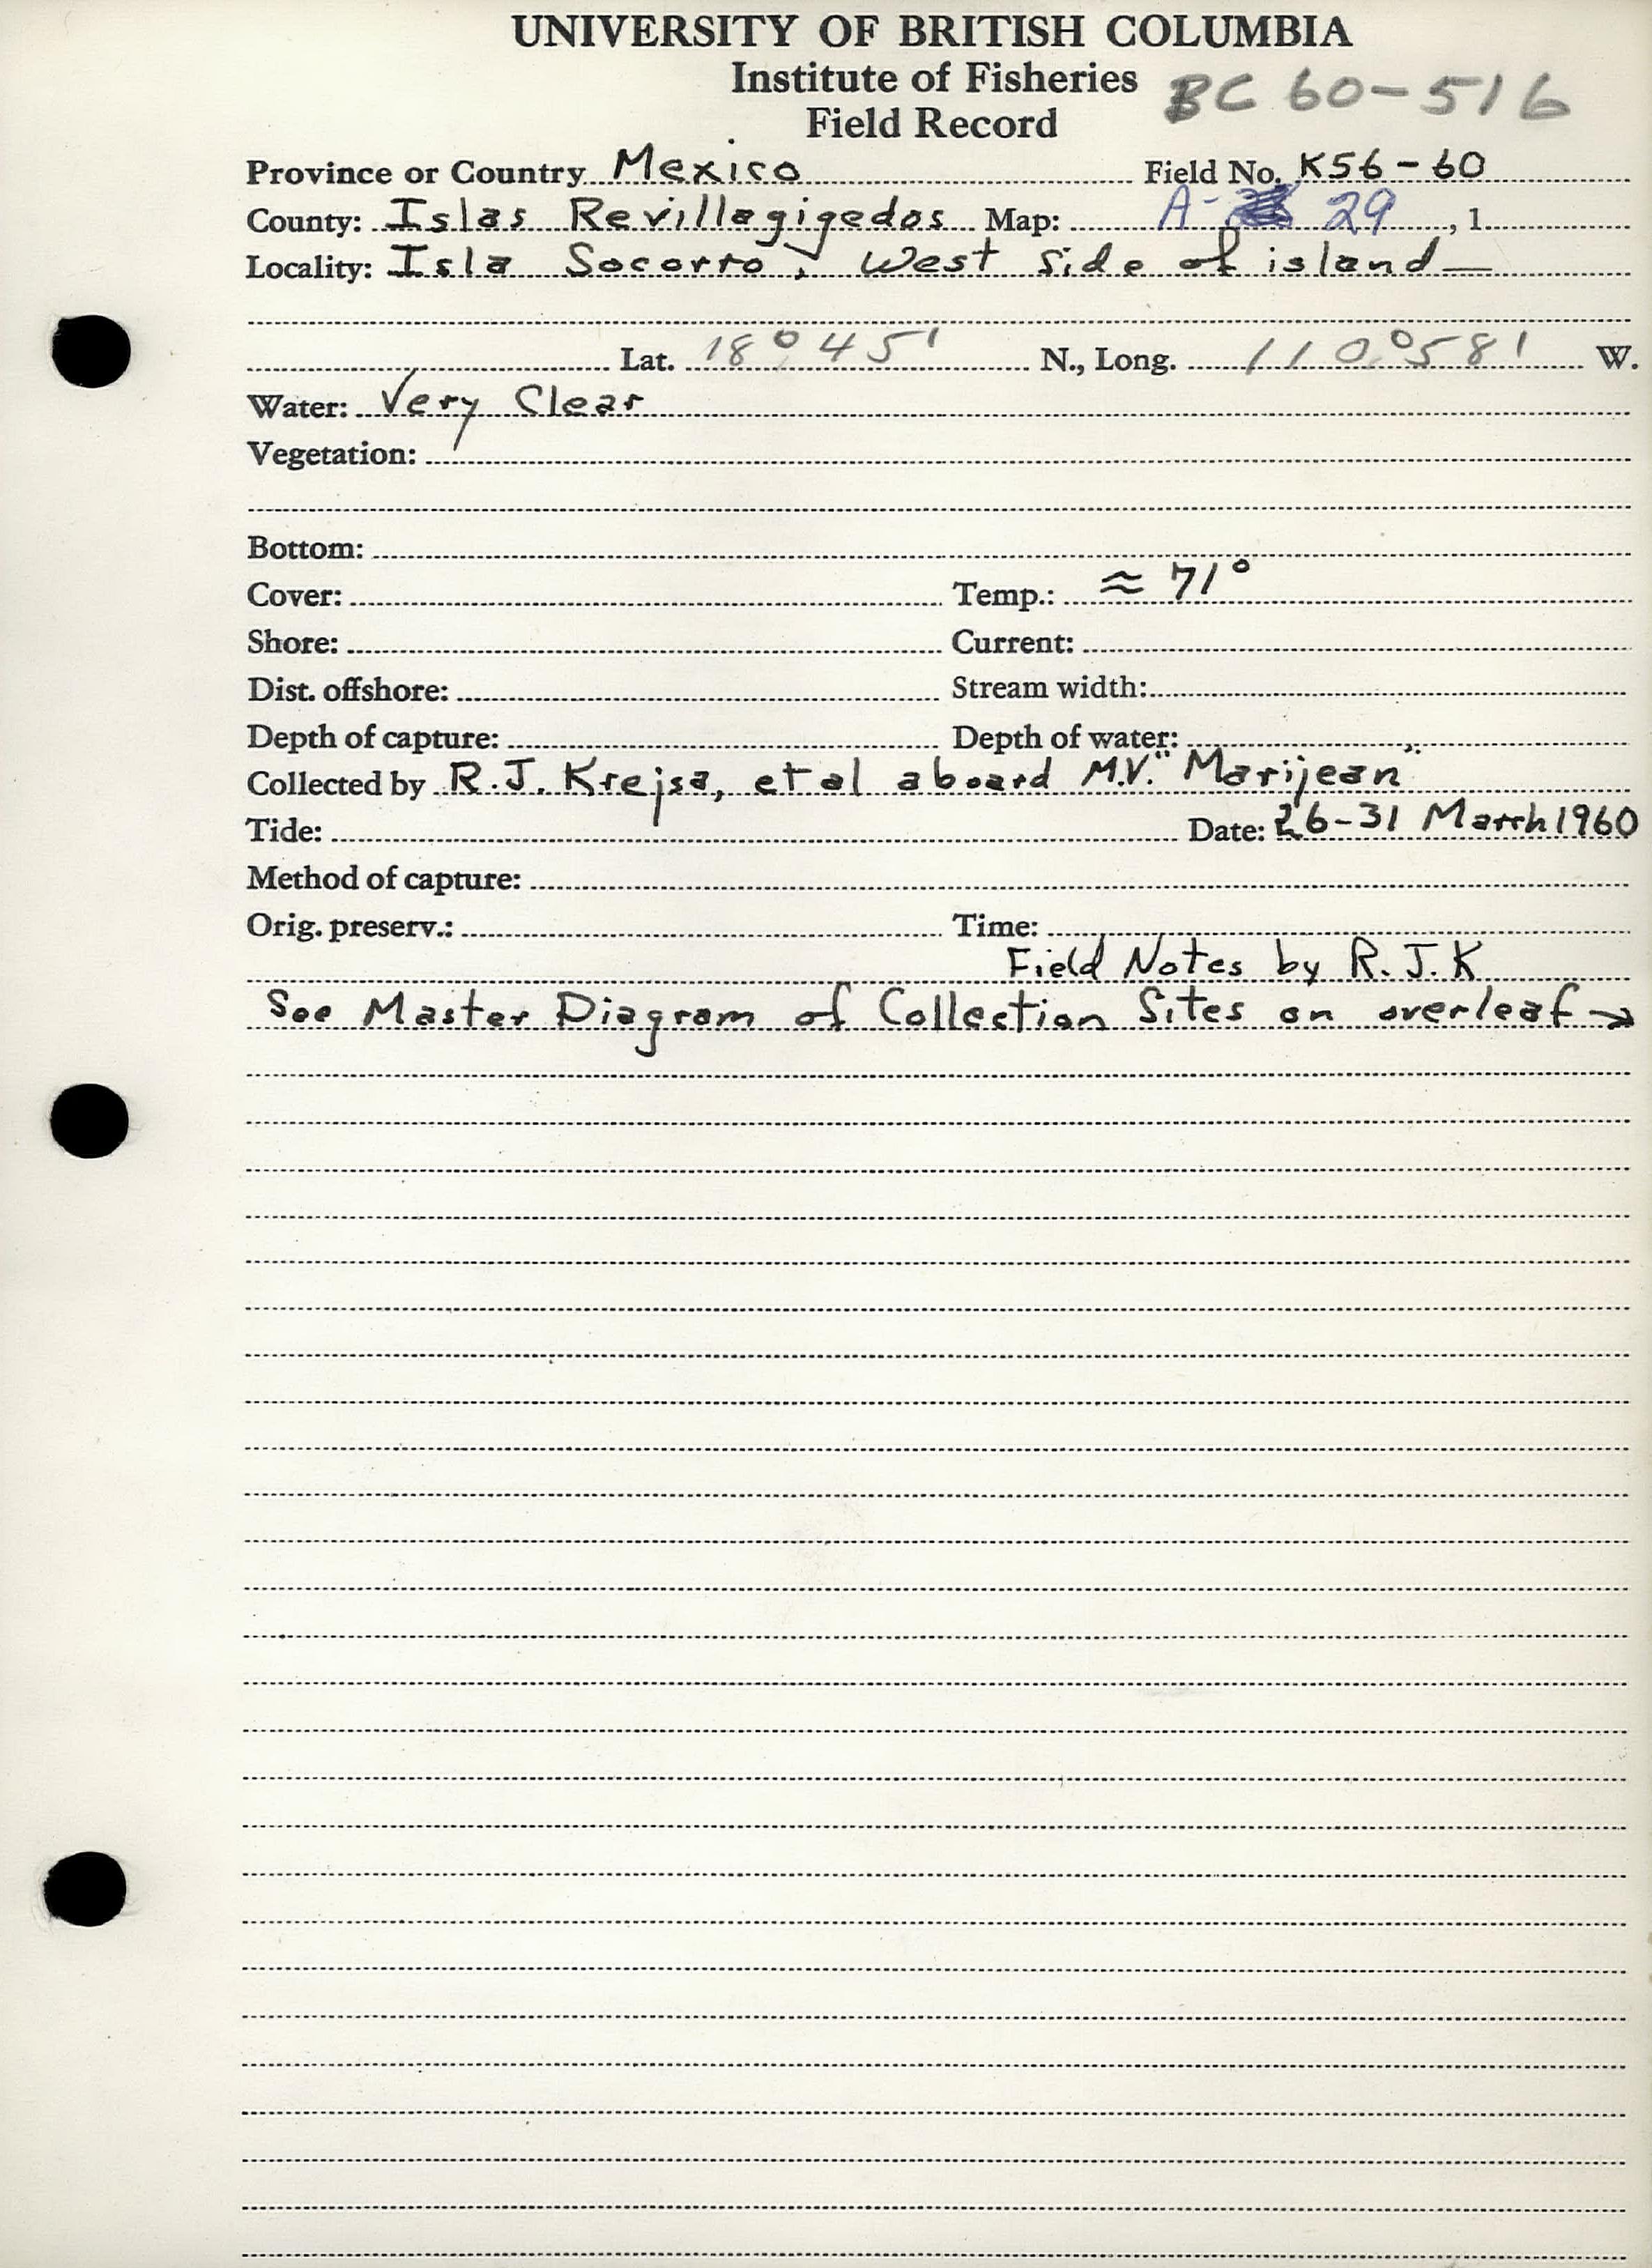 UNIVERSITY OF BRITISH COLUMBIA
Institute of Fisheries
BC 60-516
Field Record
Province or Country Mexico Field No. K56-60
County: Islas Revillagigedos Map: A- 29, 1
Locality: Isla Socorro, West side of island—
Lat. 18° 45' N., Long. 110° 58' W.
Water: Very Clear
Vegetation:
Bottom:
Cover: Temp.: ≈ 71°
Shore: Current:
Dist. offshore: Stream width:
Depth of capture: Depth of water:
Collected by R.J. Krejsa, et al aboard M.V. "Marijean"
Tide: Date: 26-31 March 1960
Method of capture:
Orig. preserv.: Time:
Field Notes by R.J.K
See Master Diagram of Collection Sites on overleaf →